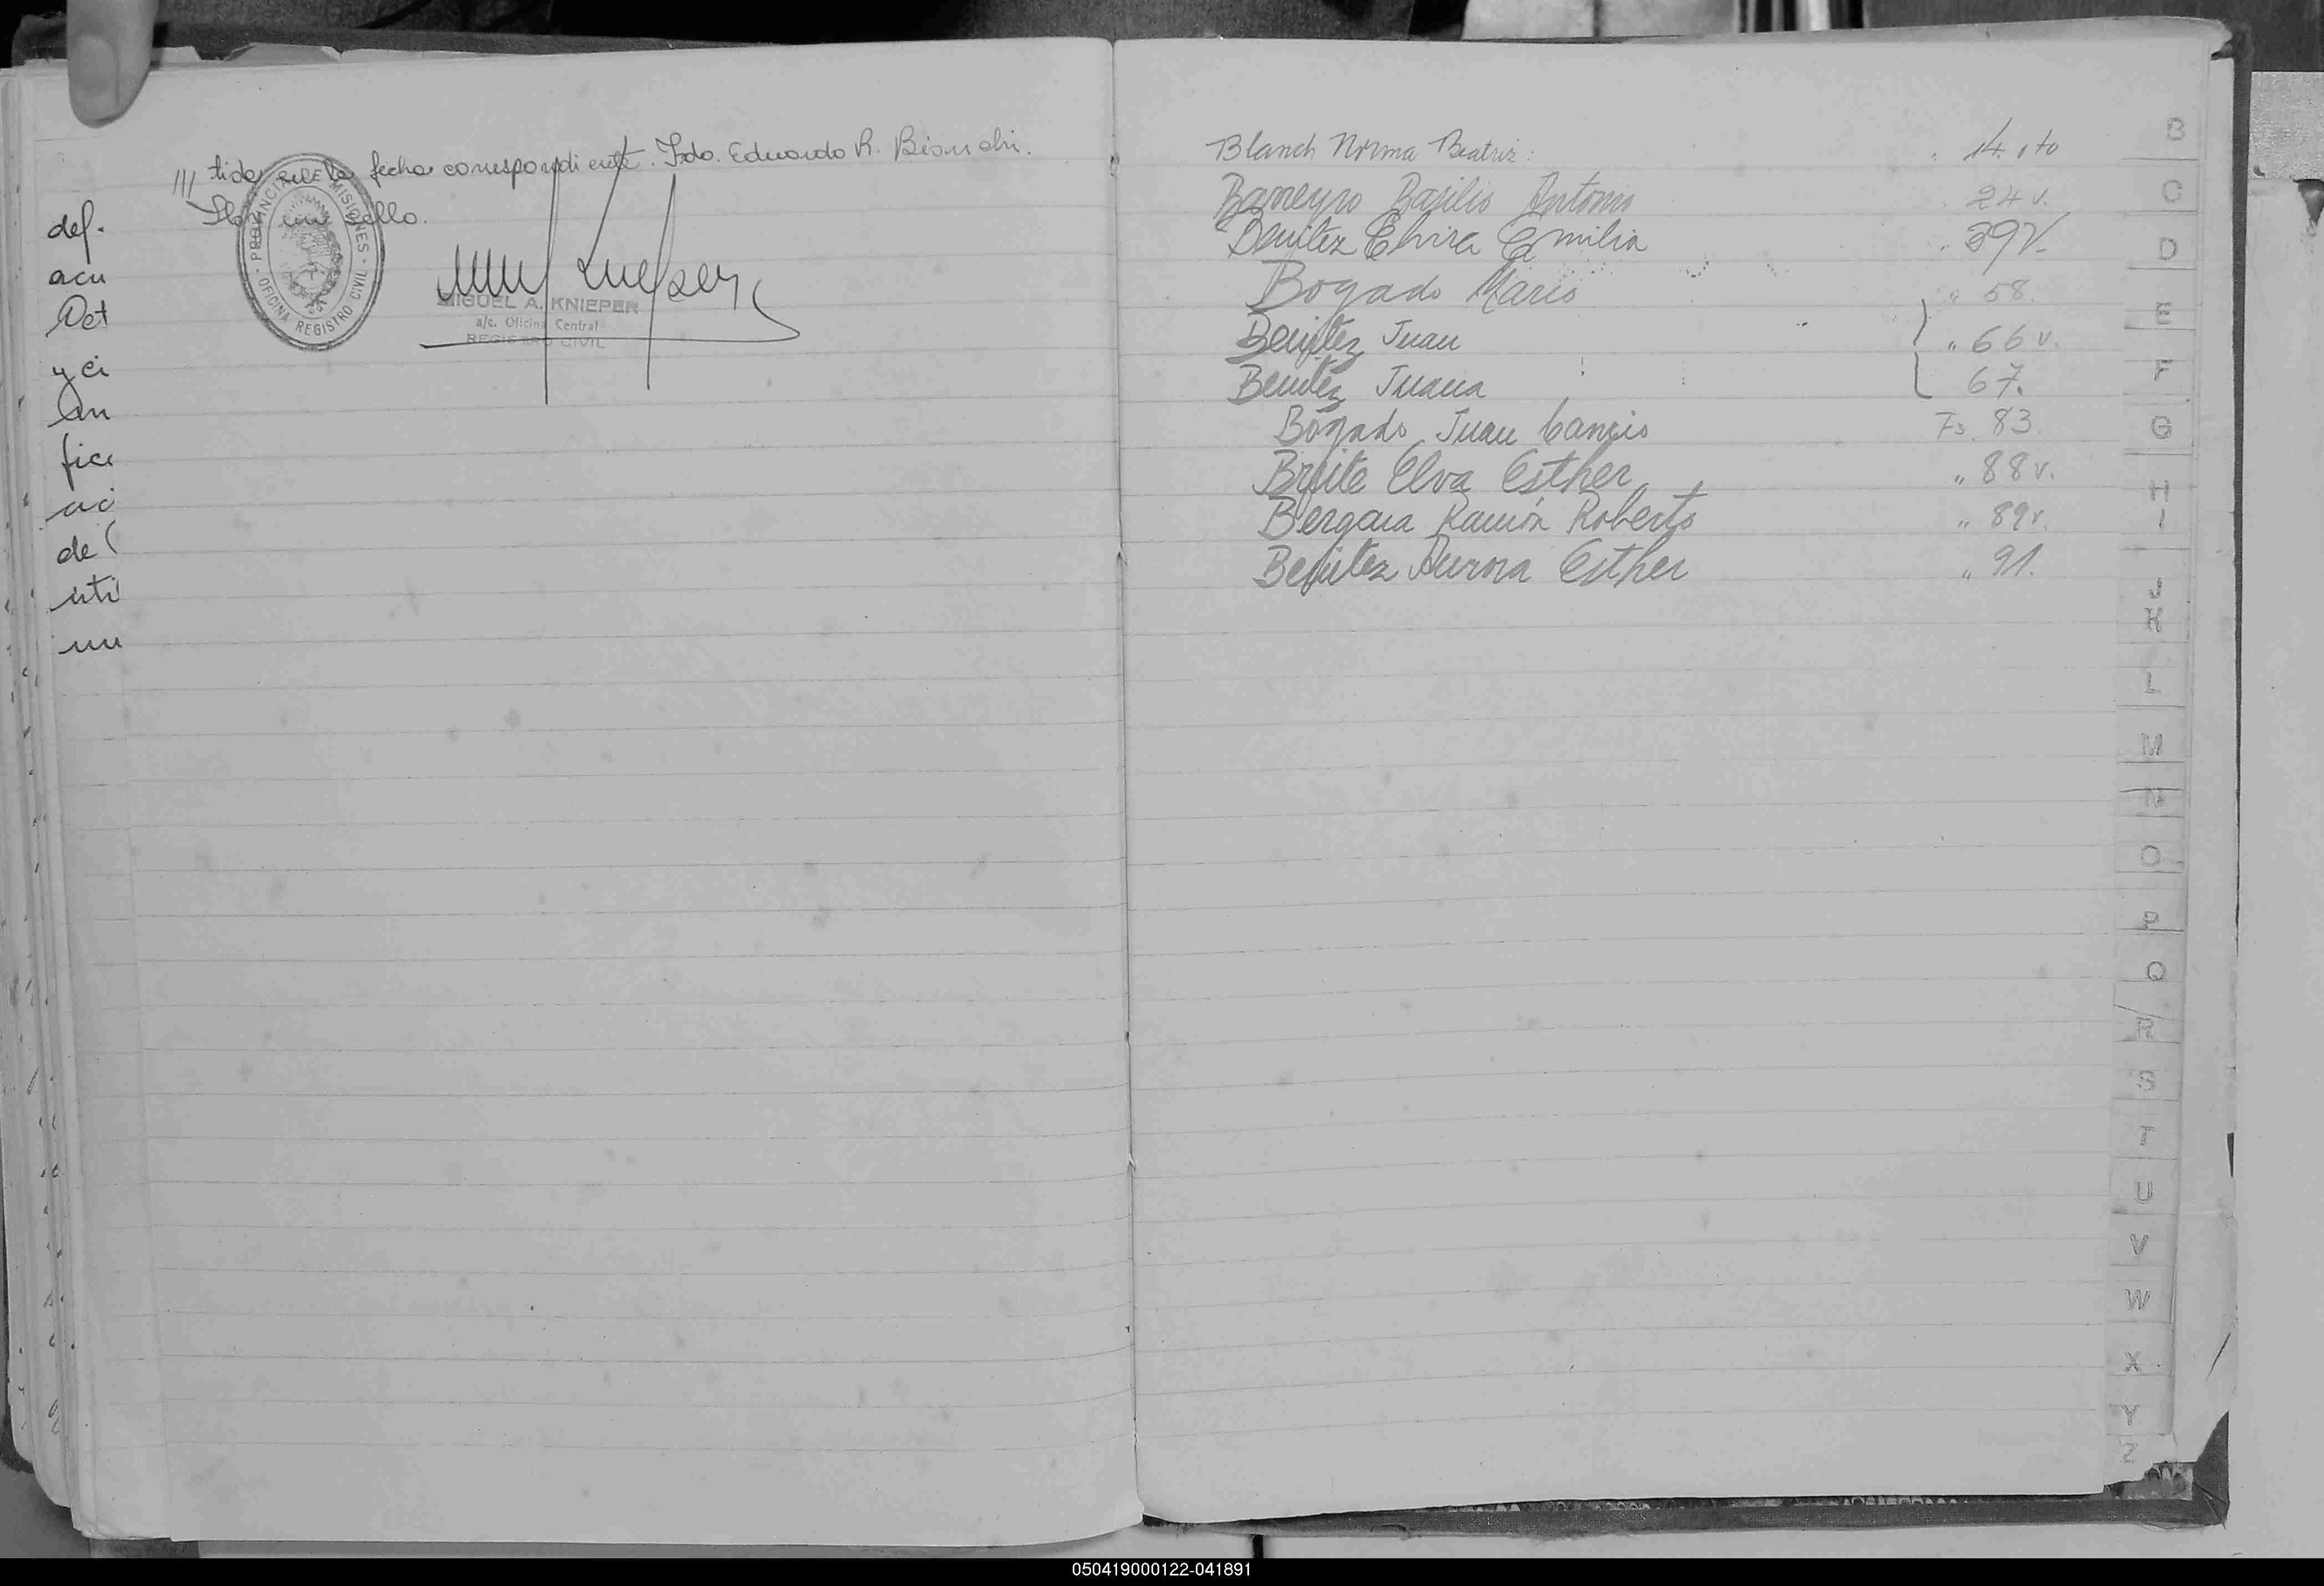 /// tida, en la fecha correspondiente. Fdo. Eduardo R. Bianchi.
Hay un sello.
PROVINCIA DE MISIONES - OFICINA REGISTRO CIVIL -
MIGUEL A. KNIEPER
a/c. Oficina Central
REGISTRO CIVIL
def.
acu
Det
y ci
fici
de (
uti
un
Blanch Norma Beatriz: 14. vto
Barreyro Basilio Antonio 24 v.
Benitez Elvira Emilia 39 v.
Bogado Mario " 58.
Benitez Juan " 66 v.
Benitez Juana 67.
Bogado Juan Cancio Fs. 83.
Briite Elva Esther " 88 v.
Bergara Ramón Roberto " 89 v.
Benitez Aurora Esther " 91.
B
C
D
E
F
G
H
I
J
K
L
M
N
O
P
Q
R
S
T
U
V
W
X
Y
Z
050419000122-041891